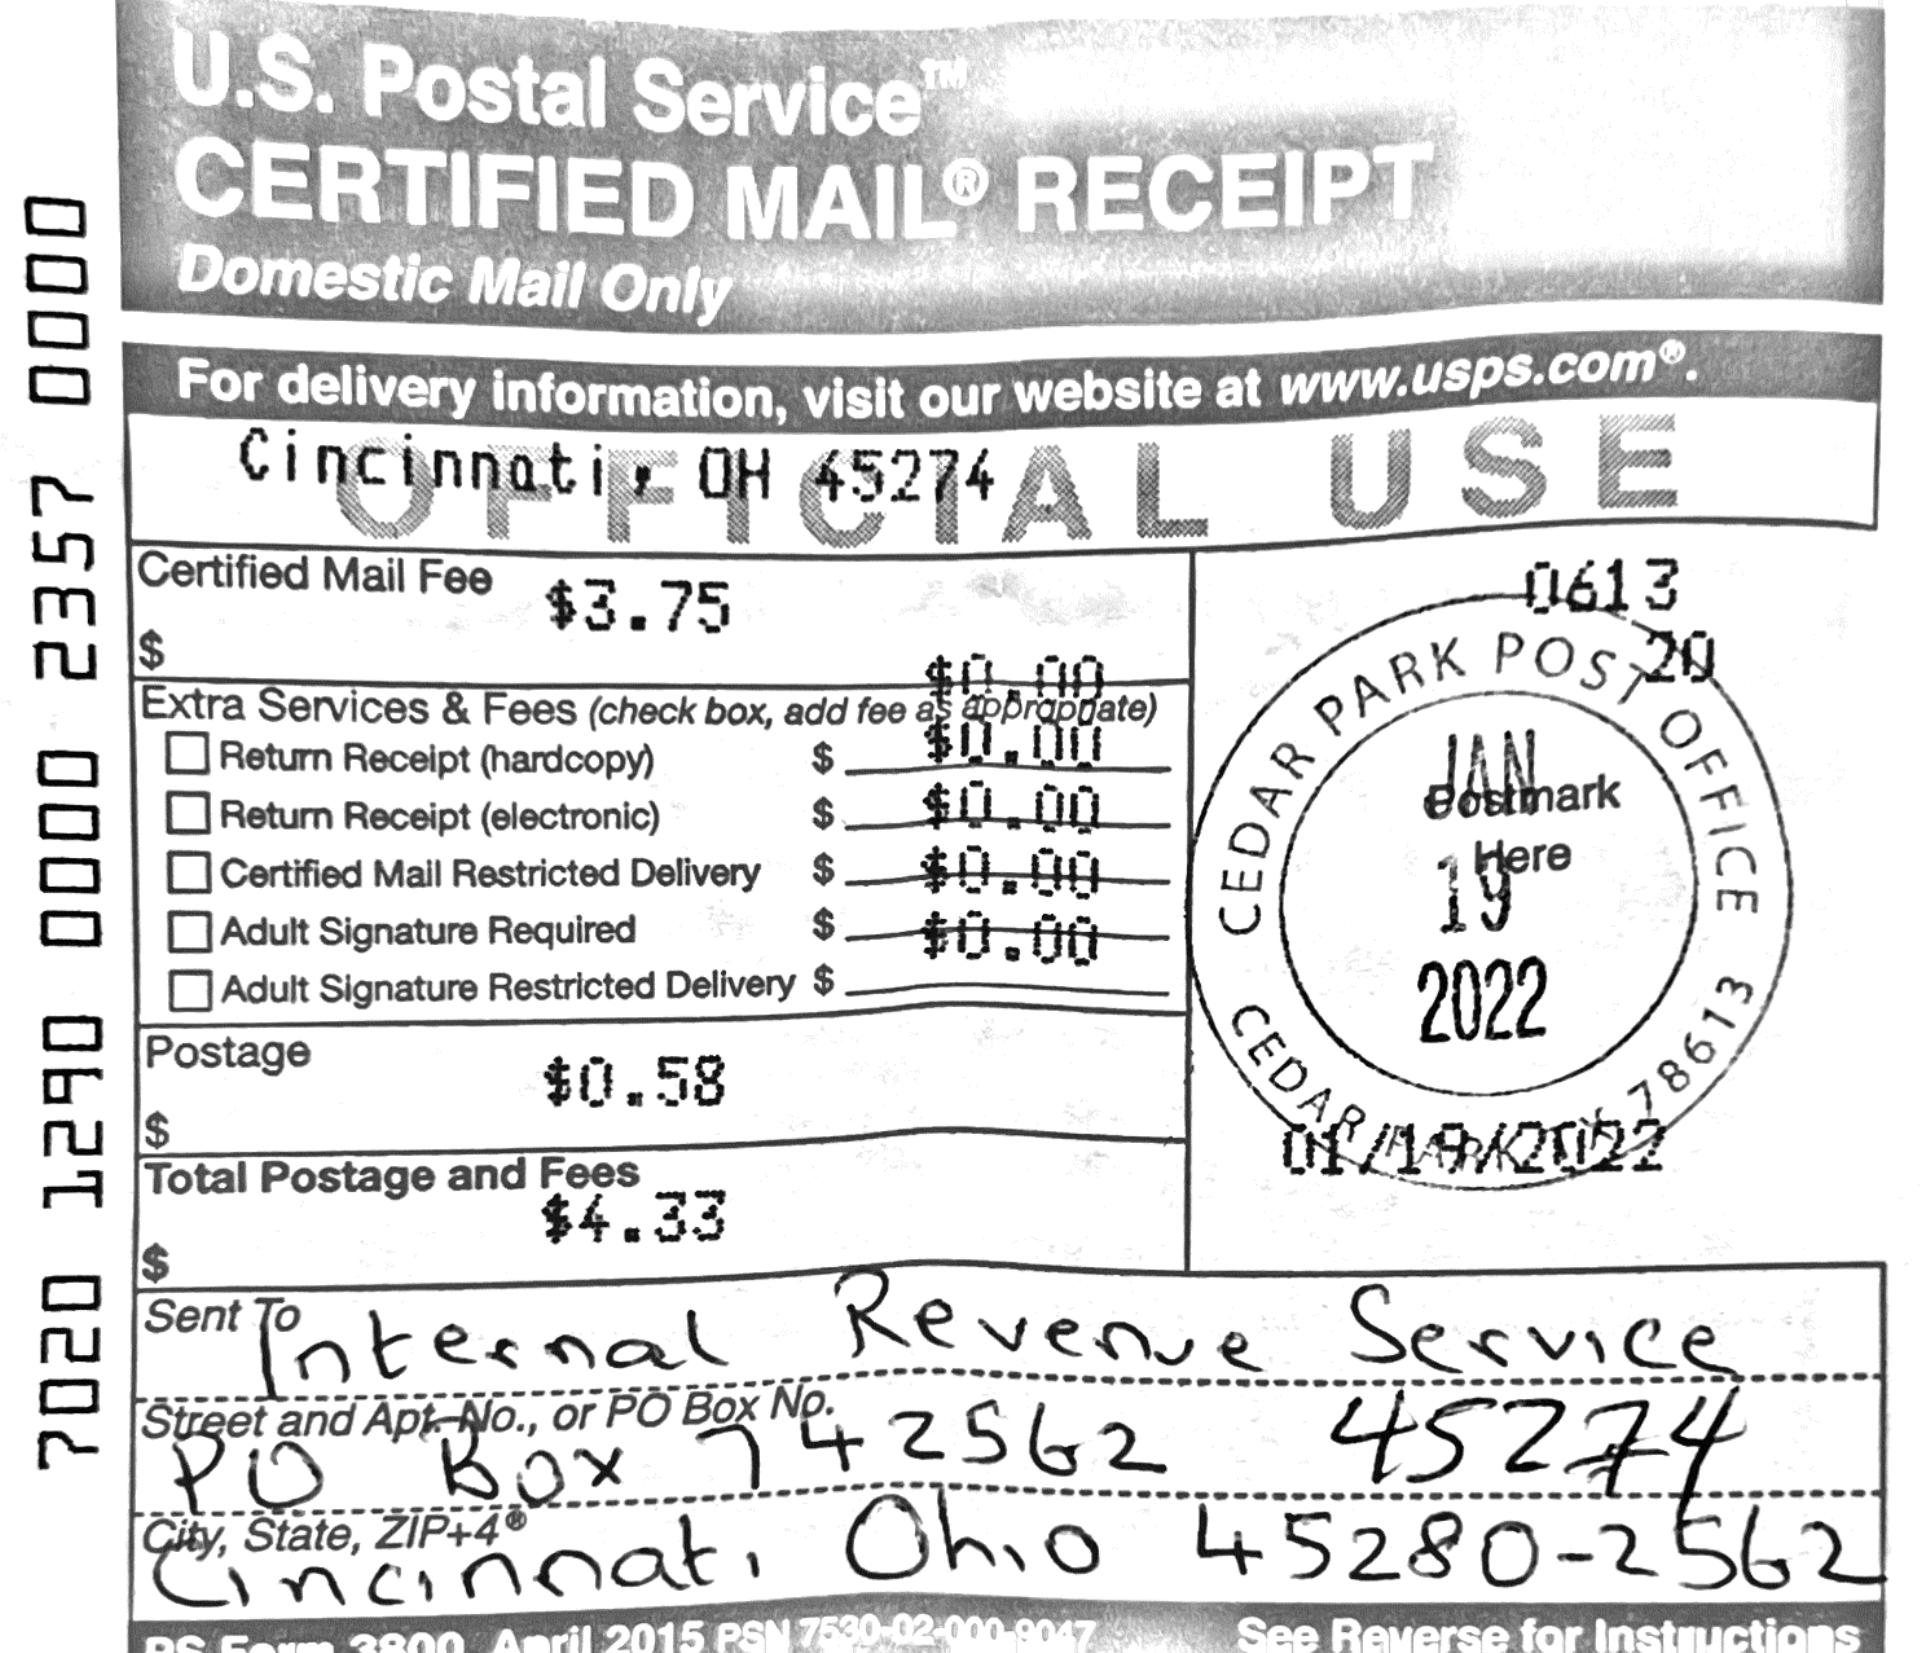 U.S. Postal Service™
CERTIFIED MAIL® RECEIPT
Domestic Mail Only
For delivery information, visit our website at www.usps.com®.
OFFICIAL USE
Cincinnati, OH 45274
Certified Mail Fee
$3.75
$
$0.00
Extra Services & Fees (check box, add fee as appropriate)
Return Receipt (hardcopy) $ $0.00
Return Receipt (electronic) $ $0.00
Certified Mail Restricted Delivery $ $0.00
Adult Signature Required $ $0.00
Adult Signature Restricted Delivery $
Postage
$0.58
$
Total Postage and Fees
$4.33
$
0613
20
CEDAR PARK POST OFFICE
JAN
Postmark
Here
19
2022
CEDAR PARK TX 78613
01/19/2022
Sent To
Internal Revenue Service
Street and Apt. No., or PO Box No.
PO Box 742562 45274
City, State, ZIP+4®
Cincinnati Ohio 45280-2562
PS Form 3800, April 2015 PSN 7530-02-000-9047 See Reverse for Instructions
7020 1290 0000 2357 0000